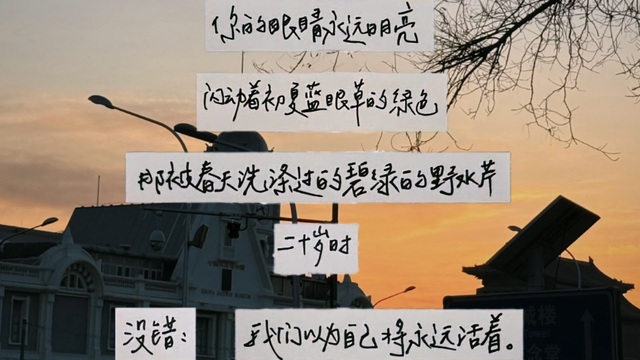 你的眼睛永远明亮
闪动着初夏蓝眼草的绿色
那被春天洗涤过的碧绿的野水芹
二十岁时
没错：
我们以为自己将永远活着。